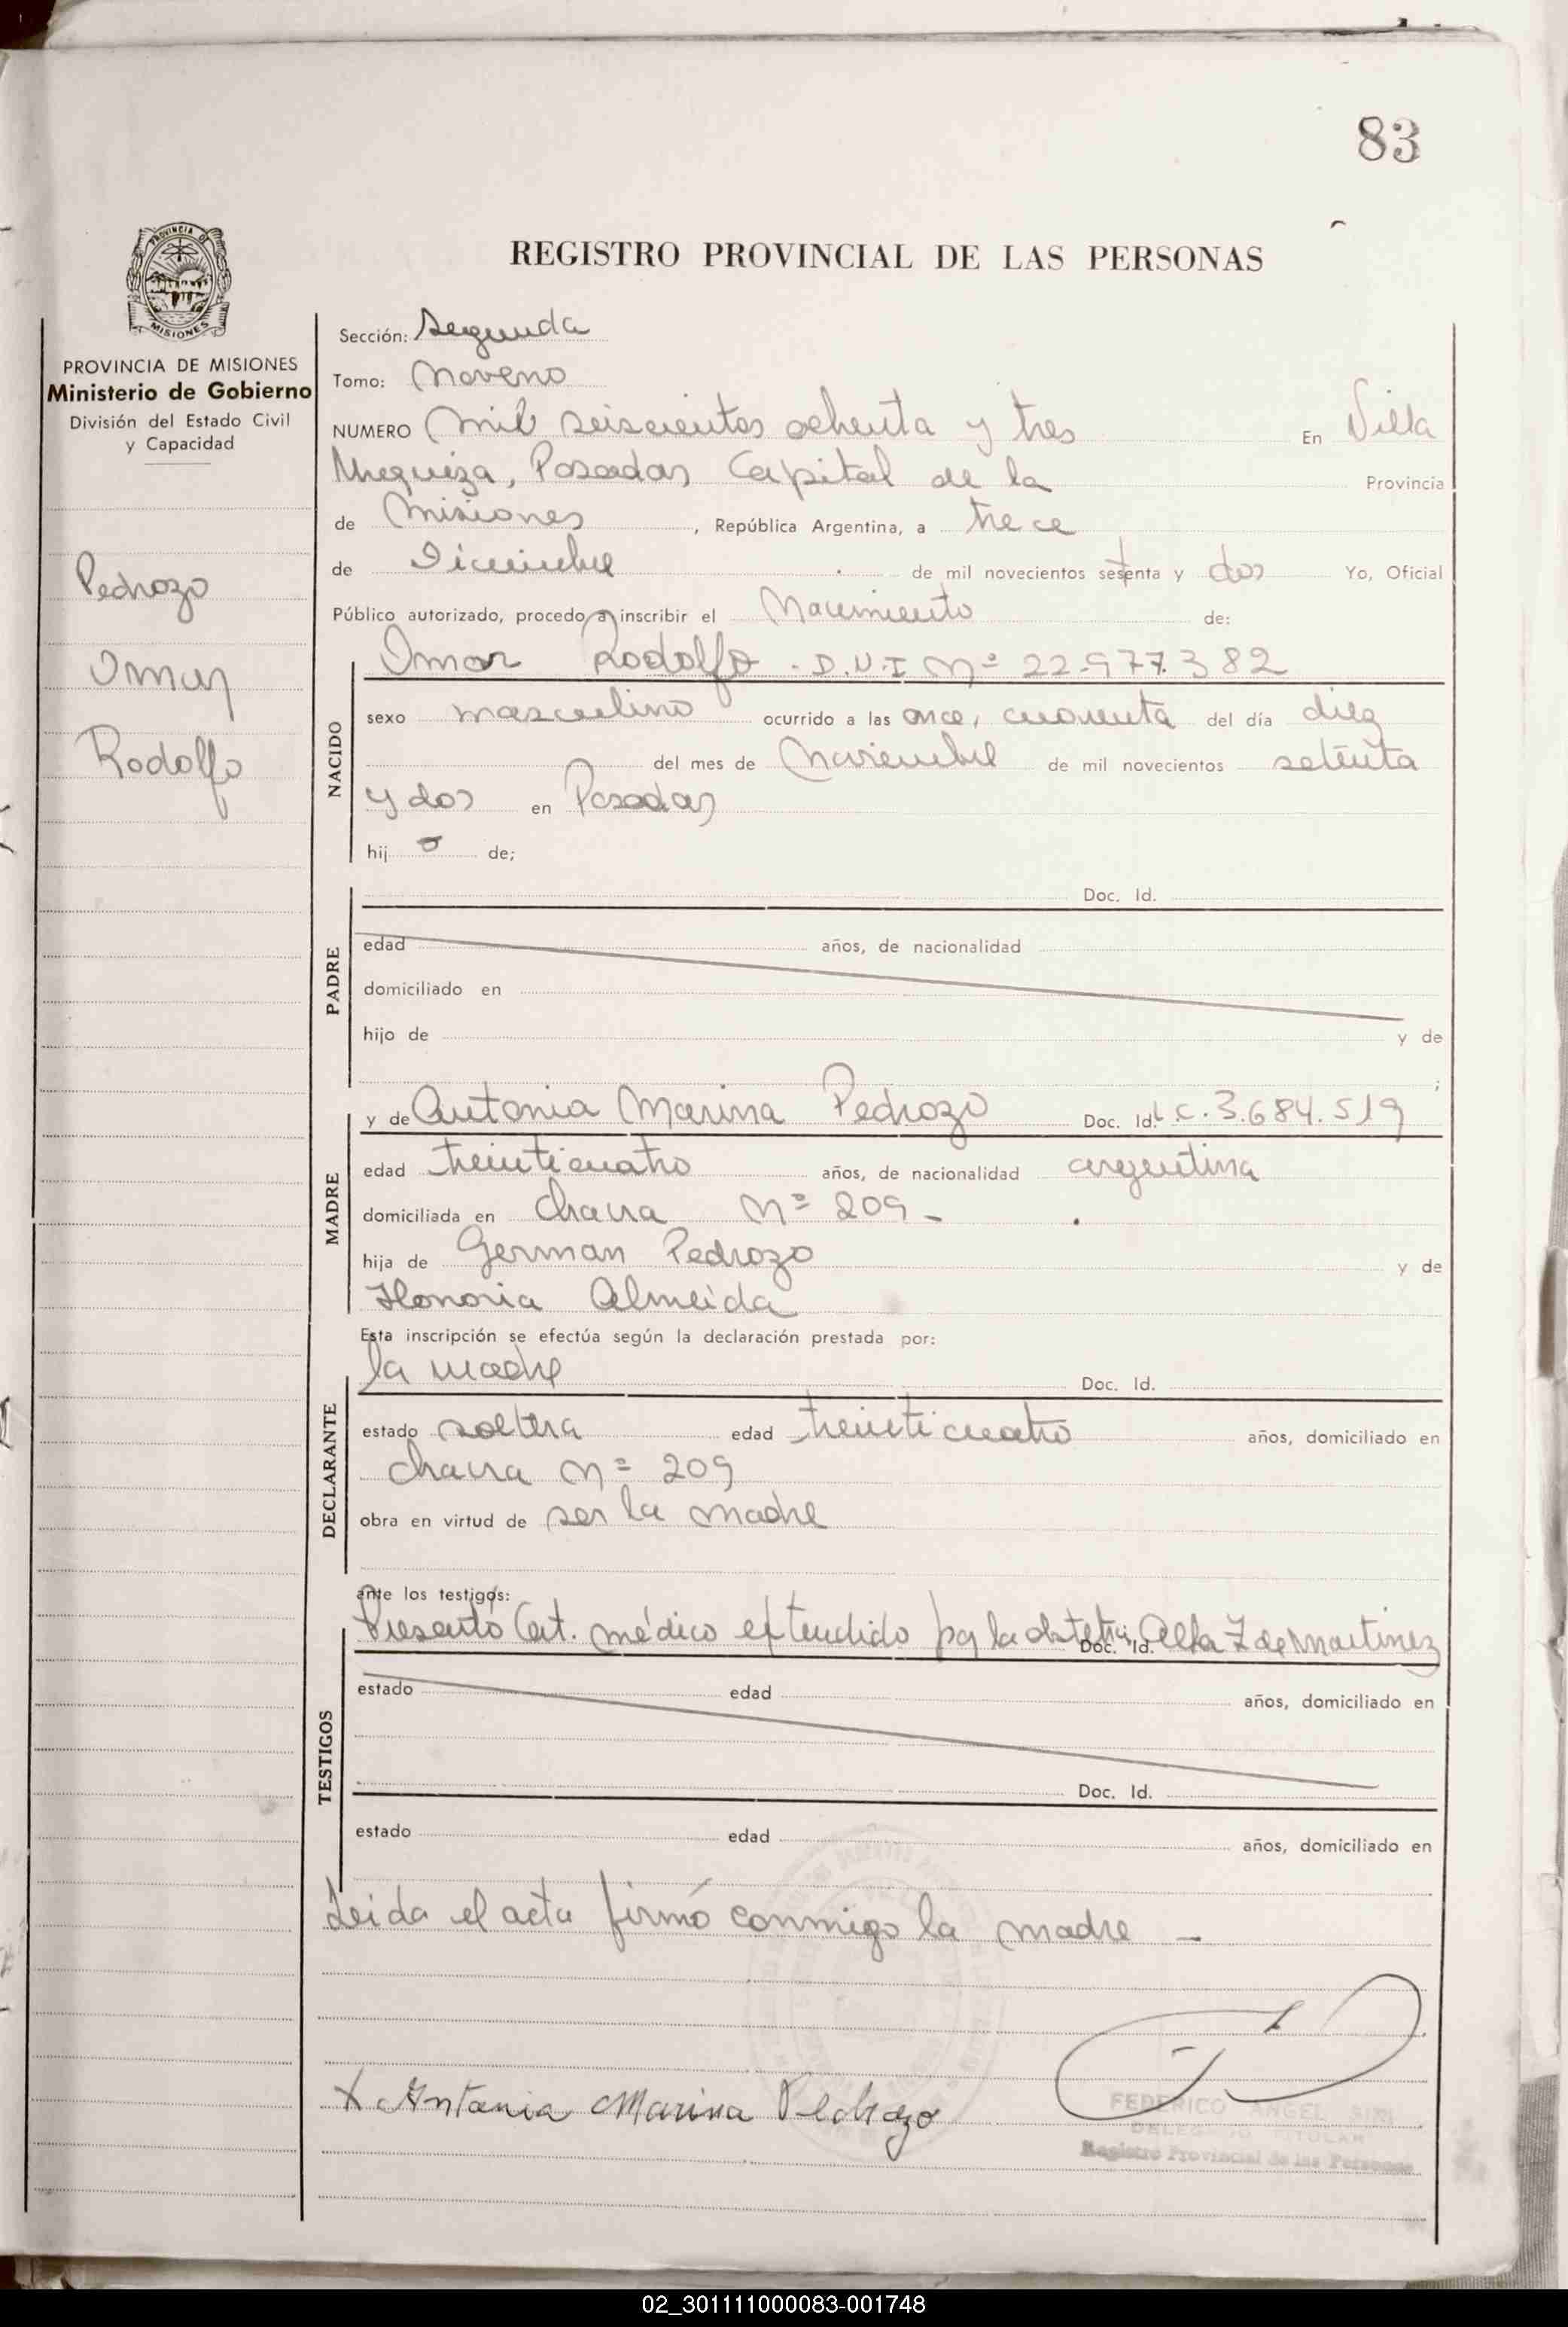 83
REGISTRO PROVINCIAL DE LAS PERSONAS
PROVINCIA DE MISIONES
Ministerio de Gobierno
División del Estado Civil
y Capacidad
Pedrozo
Omar
Rodolfo
Sección: Segunda
Tomo: Noveno
NUMERO mil seiscientos ochenta y tres En Villa
Urquiza, Posadas Capital de la Provincia
de Misiones, República Argentina, a trece
de Diciembre de mil novecientos setenta y dos Yo, Oficial
Público autorizado, procedo a inscribir el Nacimiento de:
NACIDO
Omar Rodolfo - D.N.I Nº 22.977.382
sexo masculino ocurrido a las once, cuarenta del día diez
del mes de Noviembre de mil novecientos setenta
y dos en Posadas
hij o de;
PADRE
Doc. Id.
edad años, de nacionalidad
domiciliado en
hijo de y de
;
MADRE
y de Antonia Marina Pedrozo Doc. Id. L.C. 3.684.519
edad treinticuatro años, de nacionalidad argentina
domiciliada en chacra Nº 209 -
hija de German Pedrozo y de
Honoria Almeida
DECLARANTE
Esta inscripción se efectúa según la declaración prestada por:
la madre Doc. Id.
estado soltera edad treinticuatro años, domiciliado en
chacra Nº 209
obra en virtud de ser la madre
TESTIGOS
ante los testigos:
Presentó Cert. médico extendido por la obstetriz Doc. Id. Z de Martinez
estado edad años, domiciliado en
Doc. Id.
estado edad años, domiciliado en
Leida el acta firmó conmigo la madre -
x Antonia Marina Pedrozo
FEDERICO ANGEL
DELEGADO TITULAR
Registro Provincial de las Personas
02_301111000083-001748